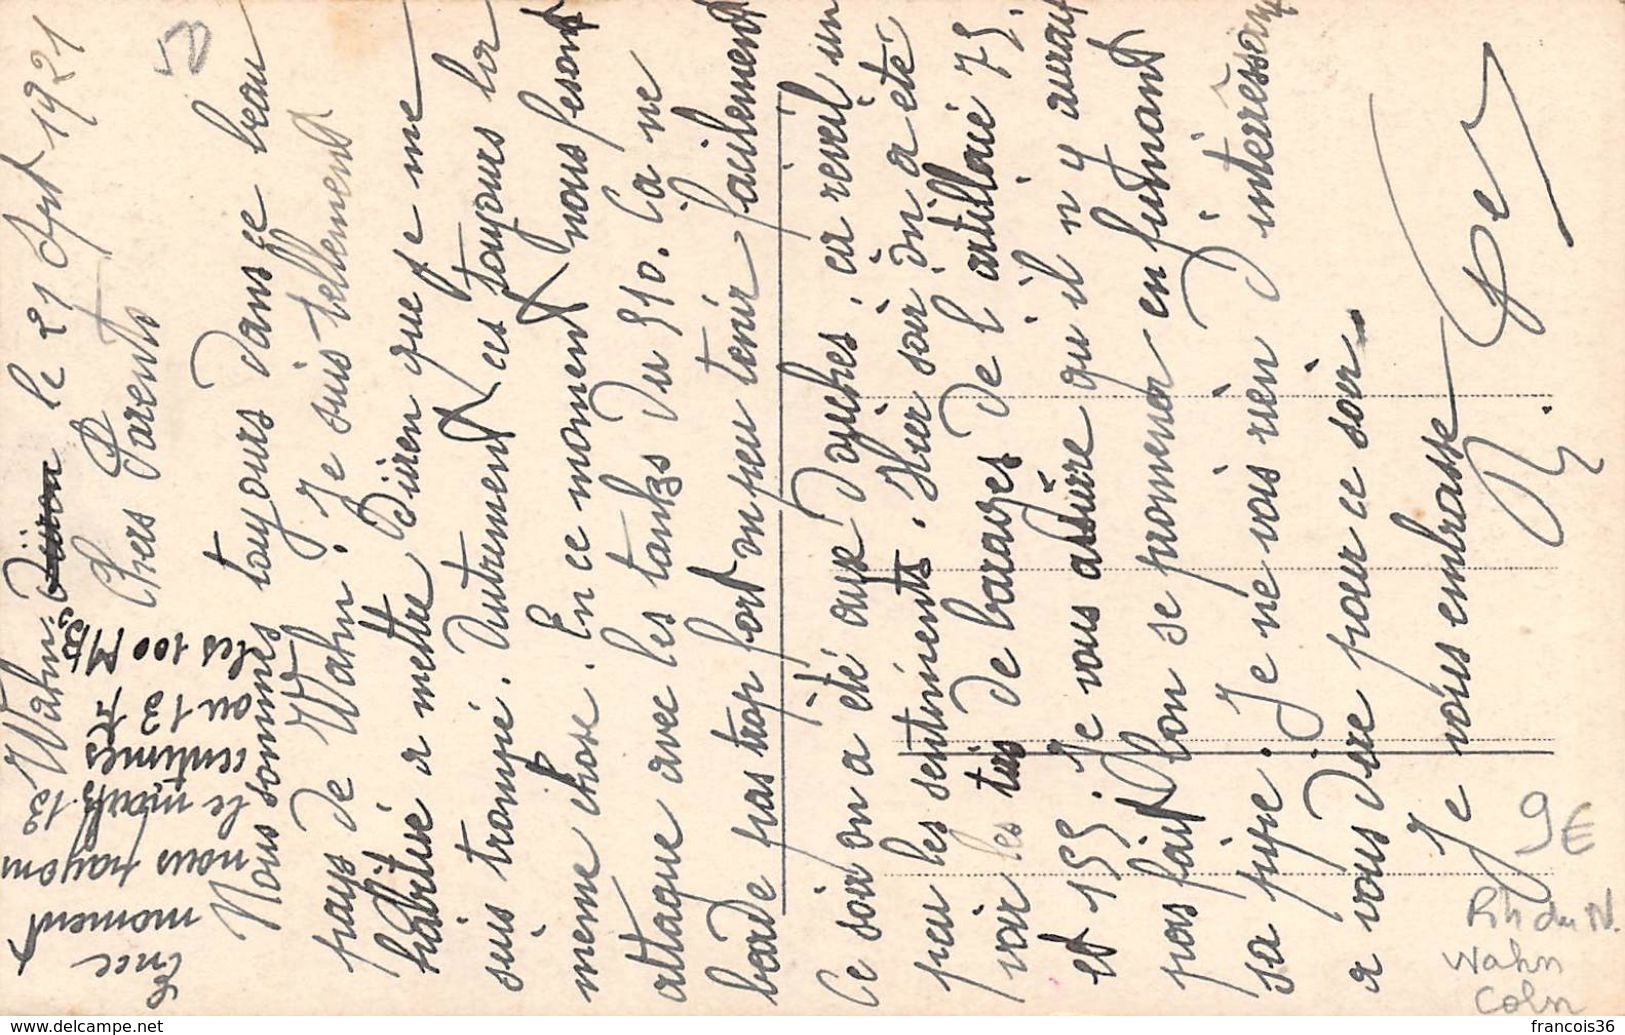 Wahn. Düren le 21 Sept 1921
Chers Parents
Nous sommes toujours dans ce beau
pays de Wahn. Je suis tellement
habitué a mettre Düren que je me
suis trompé. Autrement ces toujours la
meme chose. En ce moment nous fesont
attaque avec les tanks du 510. Ça ne
barde pas trop fort on peu tenir facilement
Ce soir on a été aux Douches, ça reveil un
peu les sentiments. Hier soir on a été
voir les tirs de barages de l'artillerie 75.
et 155. Je vous assure qu'il n y aurait
pas fait bon se promener en fumant
sa pipe. Je ne vois rien D'interessant
a vous dire pour ce soir.
Je vous embrasse
En ce
moment
nous payons
le mark 13
centimes
ou 13 F
les 100 M
9€
Rh du N.
Wahn
Coln
francois36
www.delcampe.net